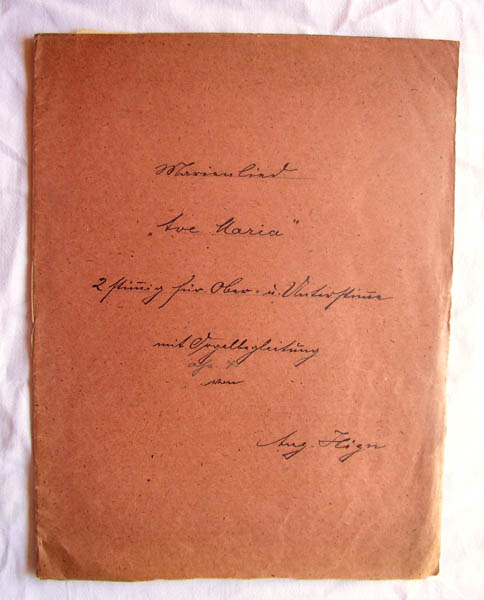 Marienlied
„Ave Maria"
2 stimmig für Ober- u. Unterstimme
mit Orgelbegleitung
von
Aug.